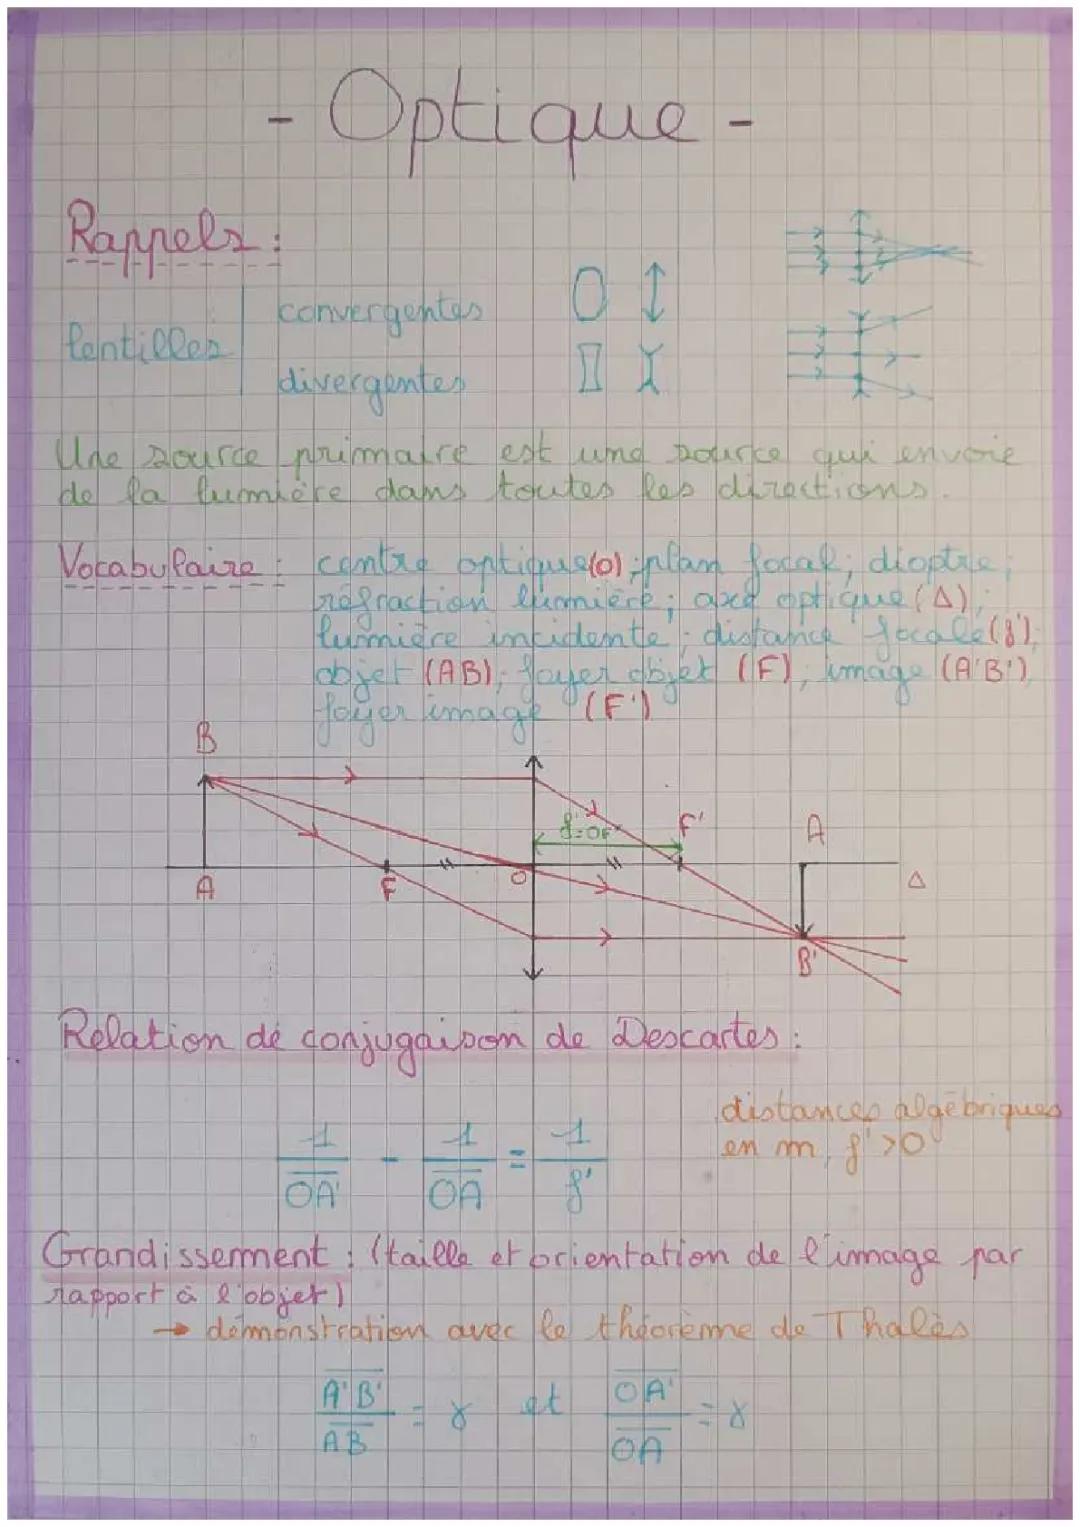 - Optique -
Rappels :
lentilles
convergentes
divergentes
Une source primaire est une source qui envoie
de la lumière dans toutes les directions.
Vocabulaire : centre optique (O) ; plan focal ; dioptre ;
réfraction lumière ; axe optique (Δ) ;
lumière incidente ; distance focale (f') ;
objet (AB) ; foyer objet (F) ; image (A'B')
foyer image (F')
B
f'=OF'
F'
A
A
F
O
Δ
B'
Relation de conjugaison de Descartes :
distances algébriques
en m, f' >0
1/OA' - 1/OA = 1/f'
Grandissement : (taille et orientation de l'image par
rapport à l'objet)
→ démonstration avec le théorème de Thalès
A'B'/AB = γ et OA'/OA = γ